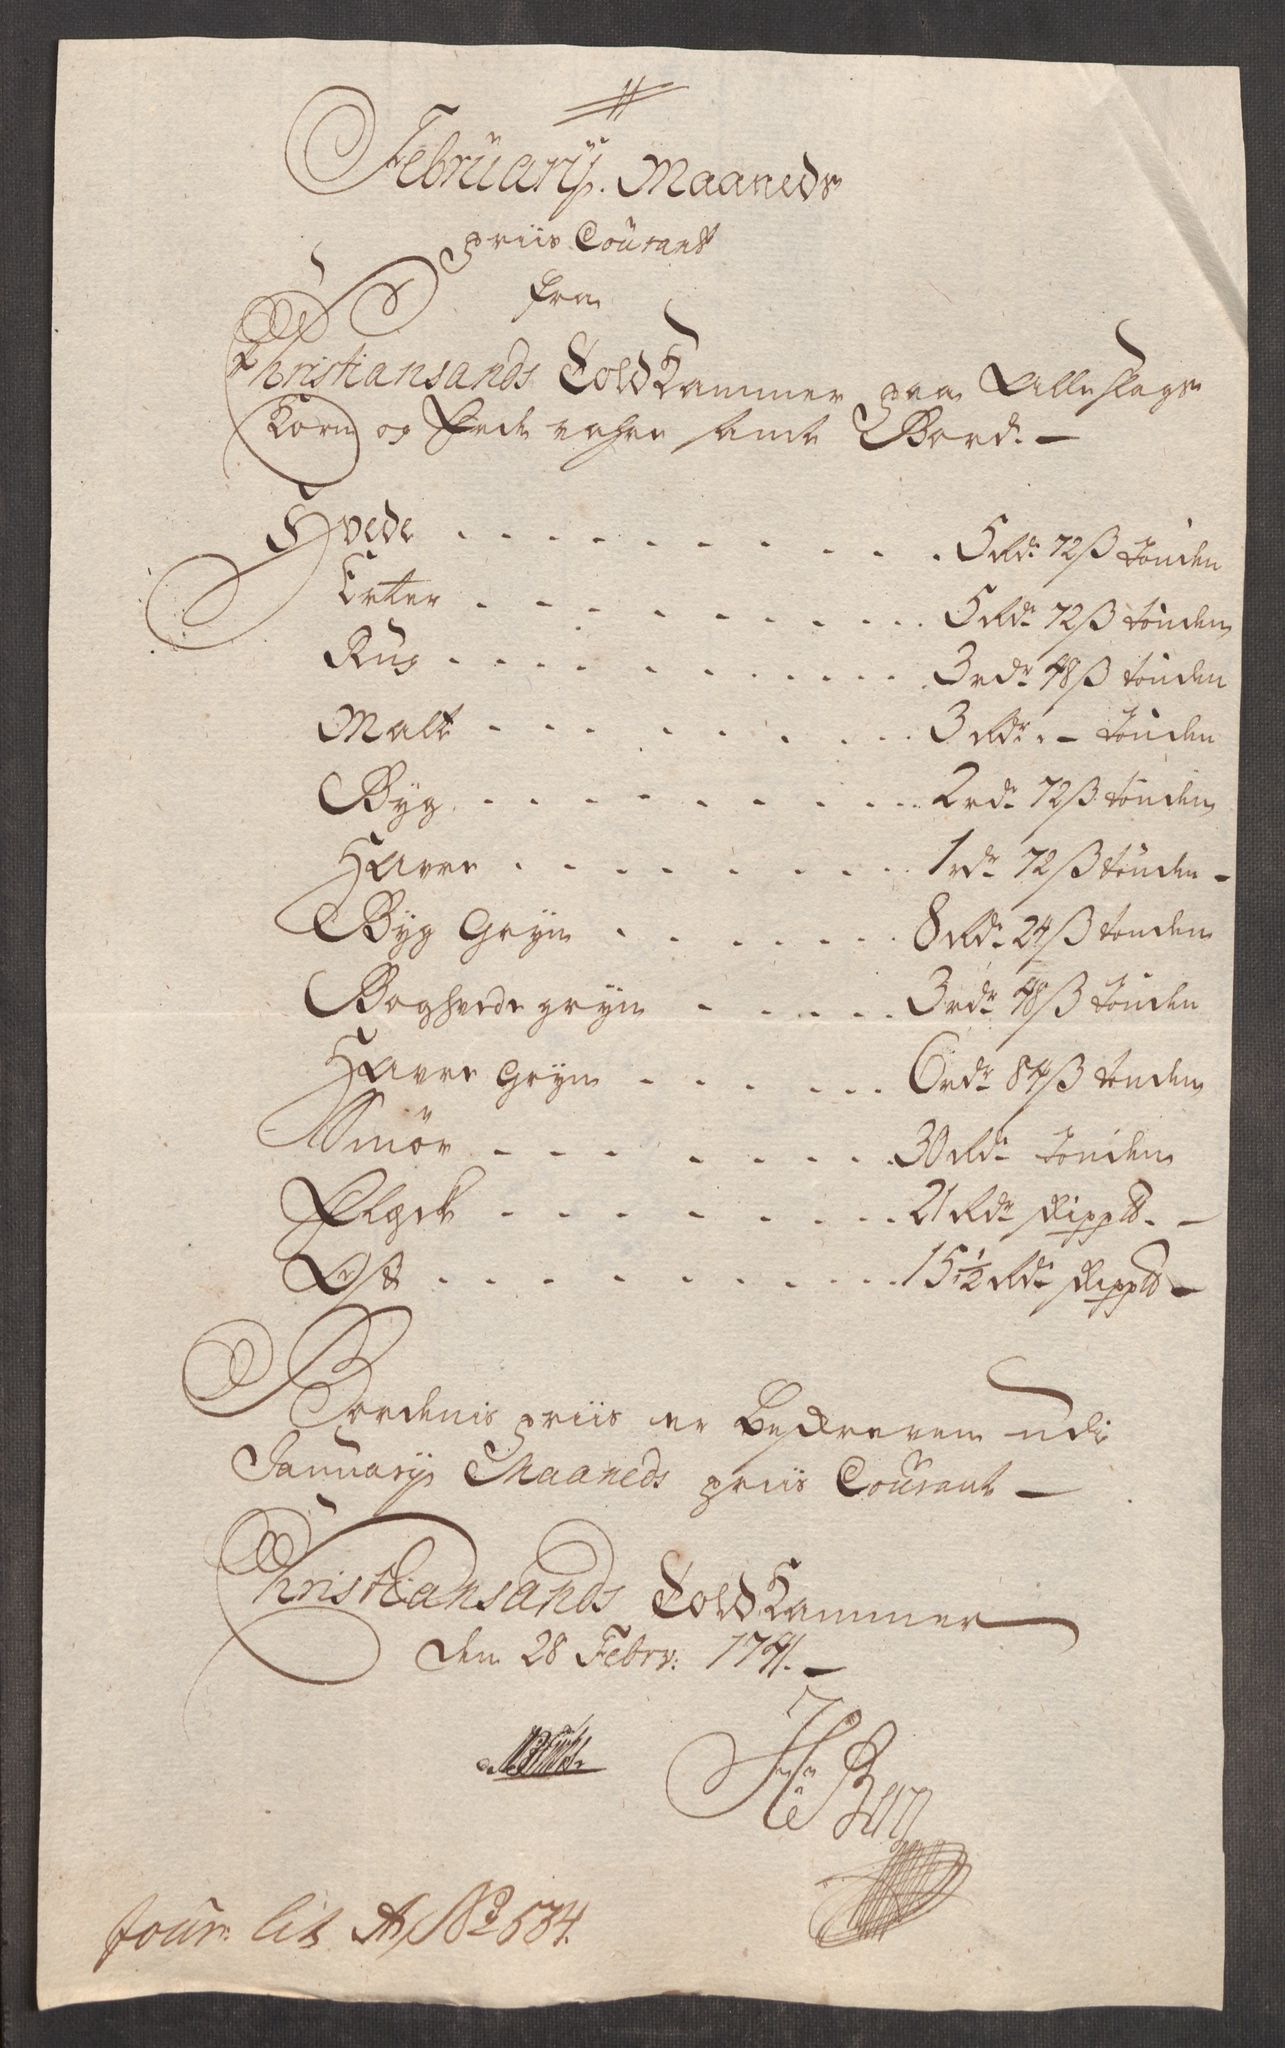 Februarij Maaneds
priis Courant
fra
Christiansands Told Kammer paa Alle slags
Korn og Fede vahre samt Bord. —
Hvede . . . . . . . . . . 5 Rdr 72 ß tönden
Erter . . . . . . . . . . 5 Rdr 72 ß tönden
Rug . . . . . . . . . . 3 rdr 48 ß tönden
Malt . . . . . . . . . 3 Rdr . - tönden
Byg . . . . . . . . . . 2 rdr 72 ß tönden
Havre . . . . . . . . . 1 rdr 72 ß tönden -
Byg Gryn . . . . . . . 8 Rdr 24 ß tönden
Boghvede gryn . . . . . 3 rdr 48 ß tönden
Havre Gryn . . . . . . 6 rdr 84 ß tönden
Smör . . . . . . . . . 30 Rdr tönden
Flesk . . . . . . . . . 21 Rdr skipp℔. -
Ost . . . . . . . . . . 15 1/2 Rdr skipp℔ -
Bordenis priis er Beskreven udi
Januarij Maaneds priis Courant —
Christiansands Told Kammer
den 28 Febrv: 1741. —
Jour: lit A No 534.